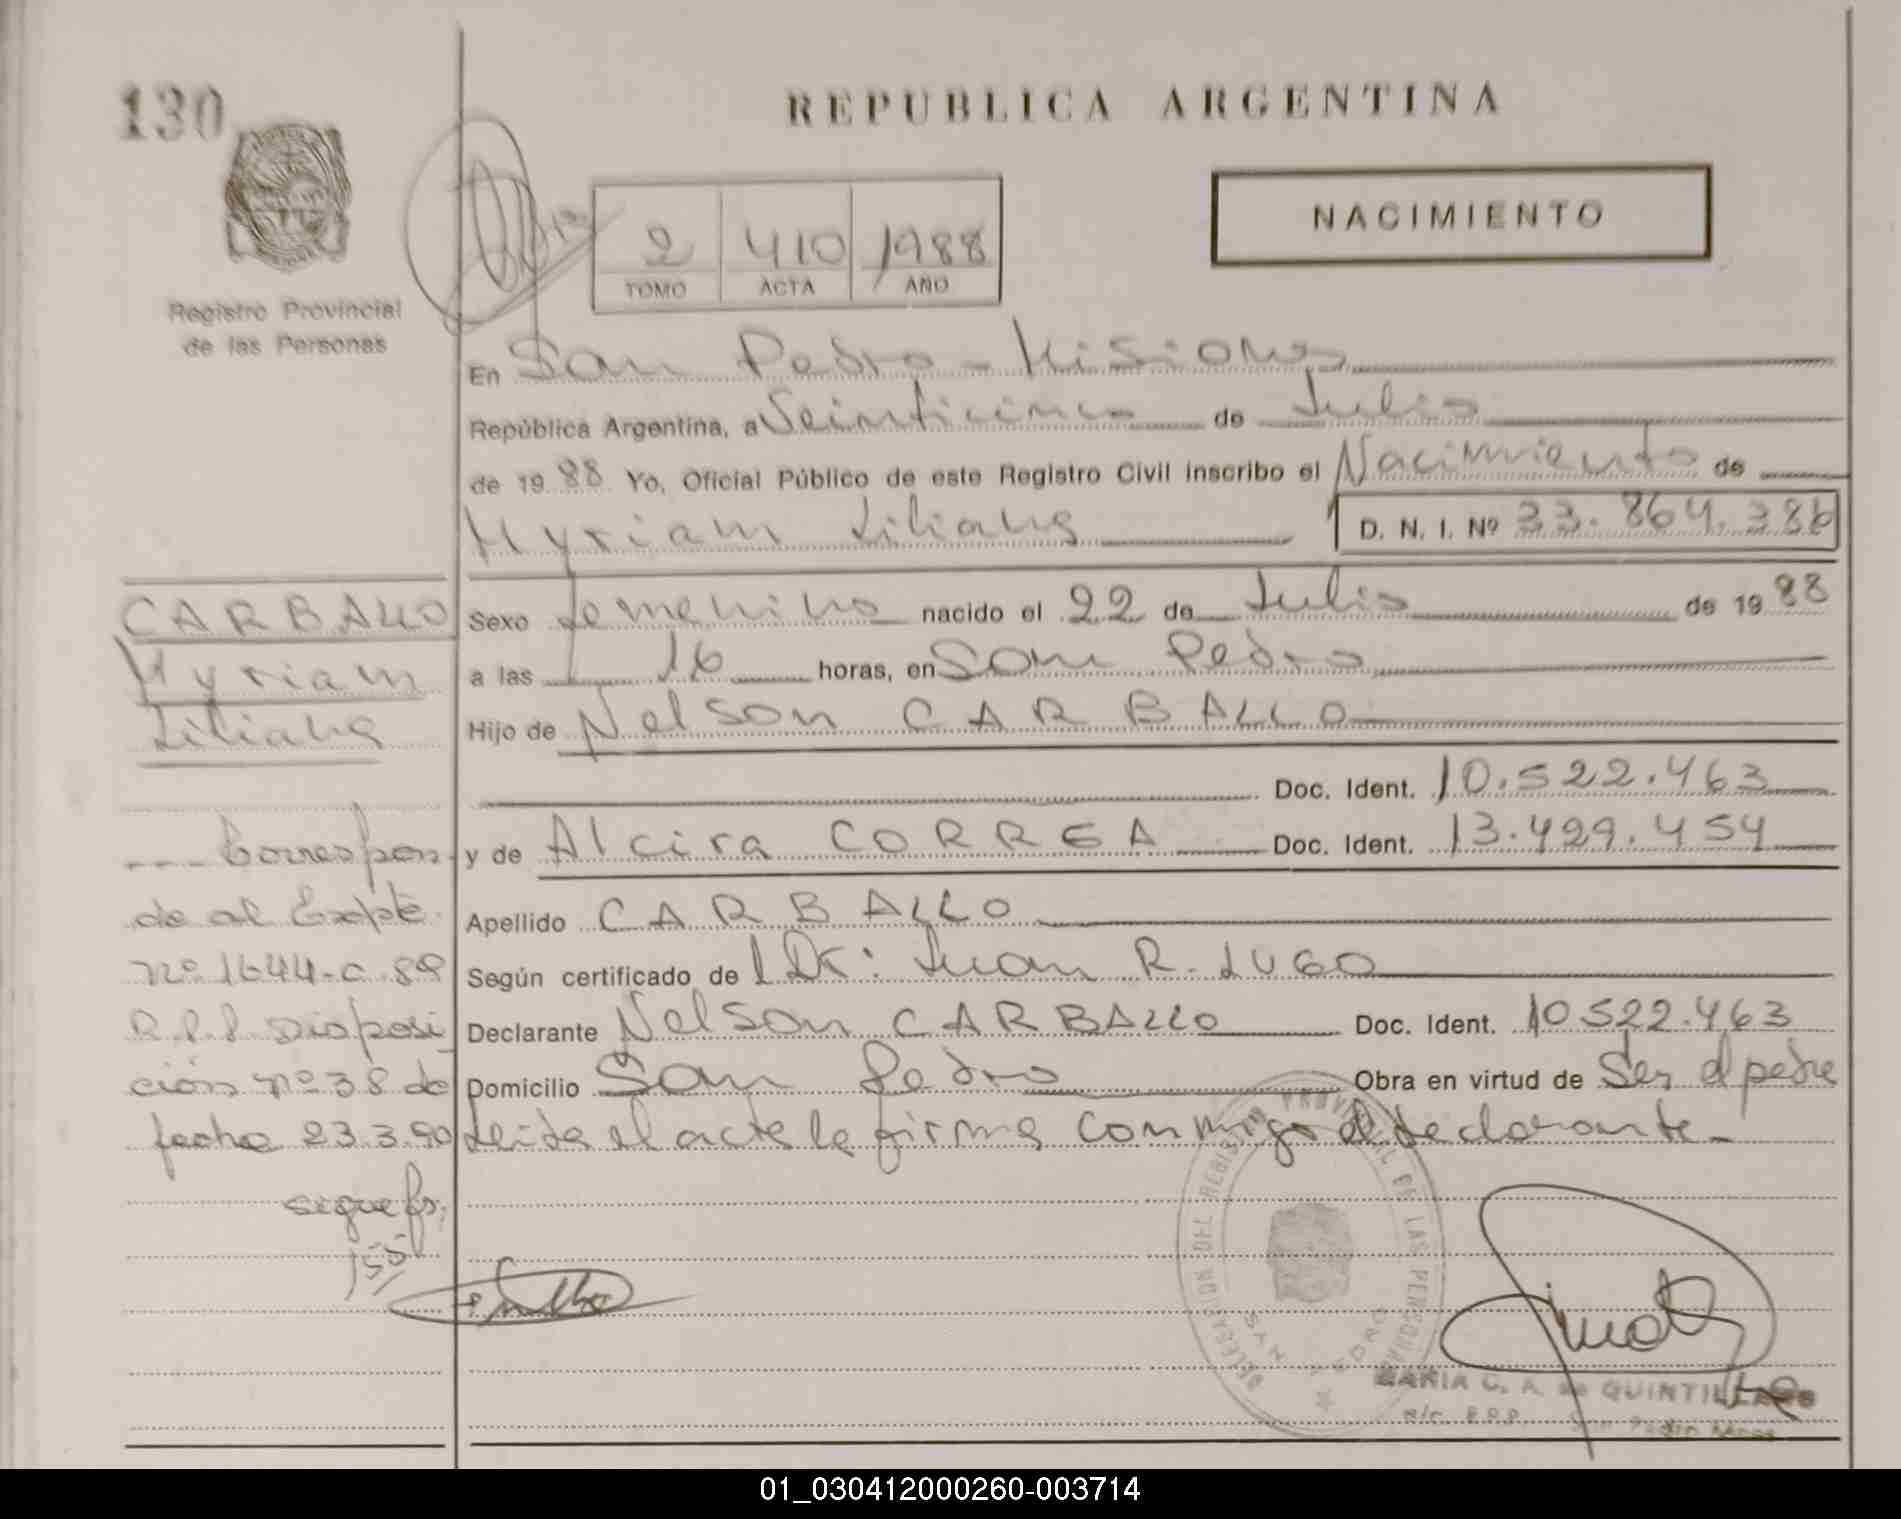 130
REPUBLICA ARGENTINA
NACIMIENTO
2 410 1988
TOMO ACTA AÑO
Registro Provincial
de las Personas
En San Pedro - Misiones
República Argentina, a Veinticinco de Julio
de 1988 Yo, Oficial Público de este Registro Civil inscribo el Nacimiento de
Myriam Liliana D. N. I. Nº 33.864.386
CARBALLO
Myriam
Liliana
Sexo femenino nacido el 22 de Julio de 1988
a las 16 horas, en San Pedro
Hijo de Nelson CARBALLO
Doc. Ident. 10.522.463
y de Alcira CORREA Doc. Ident. 13.429.454
Apellido CARBALLO
Según certificado de Dr: Juan R. LUGO
Declarante Nelson CARBALLO Doc. Ident. 10.522.463
Domicilio San Pedro Obra en virtud de Ser el padre
Leida el acta la firma conmigo el declarante.-
--- Correspon-
de al Expte.
nº 1644-c-89
R.P.P. Disposi-
ción nº 38 de
fecha 23.3.90
sigue fs.
155//
DELEGACION DEL REGISTRO PROVINCIAL DE LAS PERSONAS
SAN PEDRO
MARIA C. R. de QUINTILLANO
a/c. R.P.P. San Pedro Mnes
01_030412000260-003714